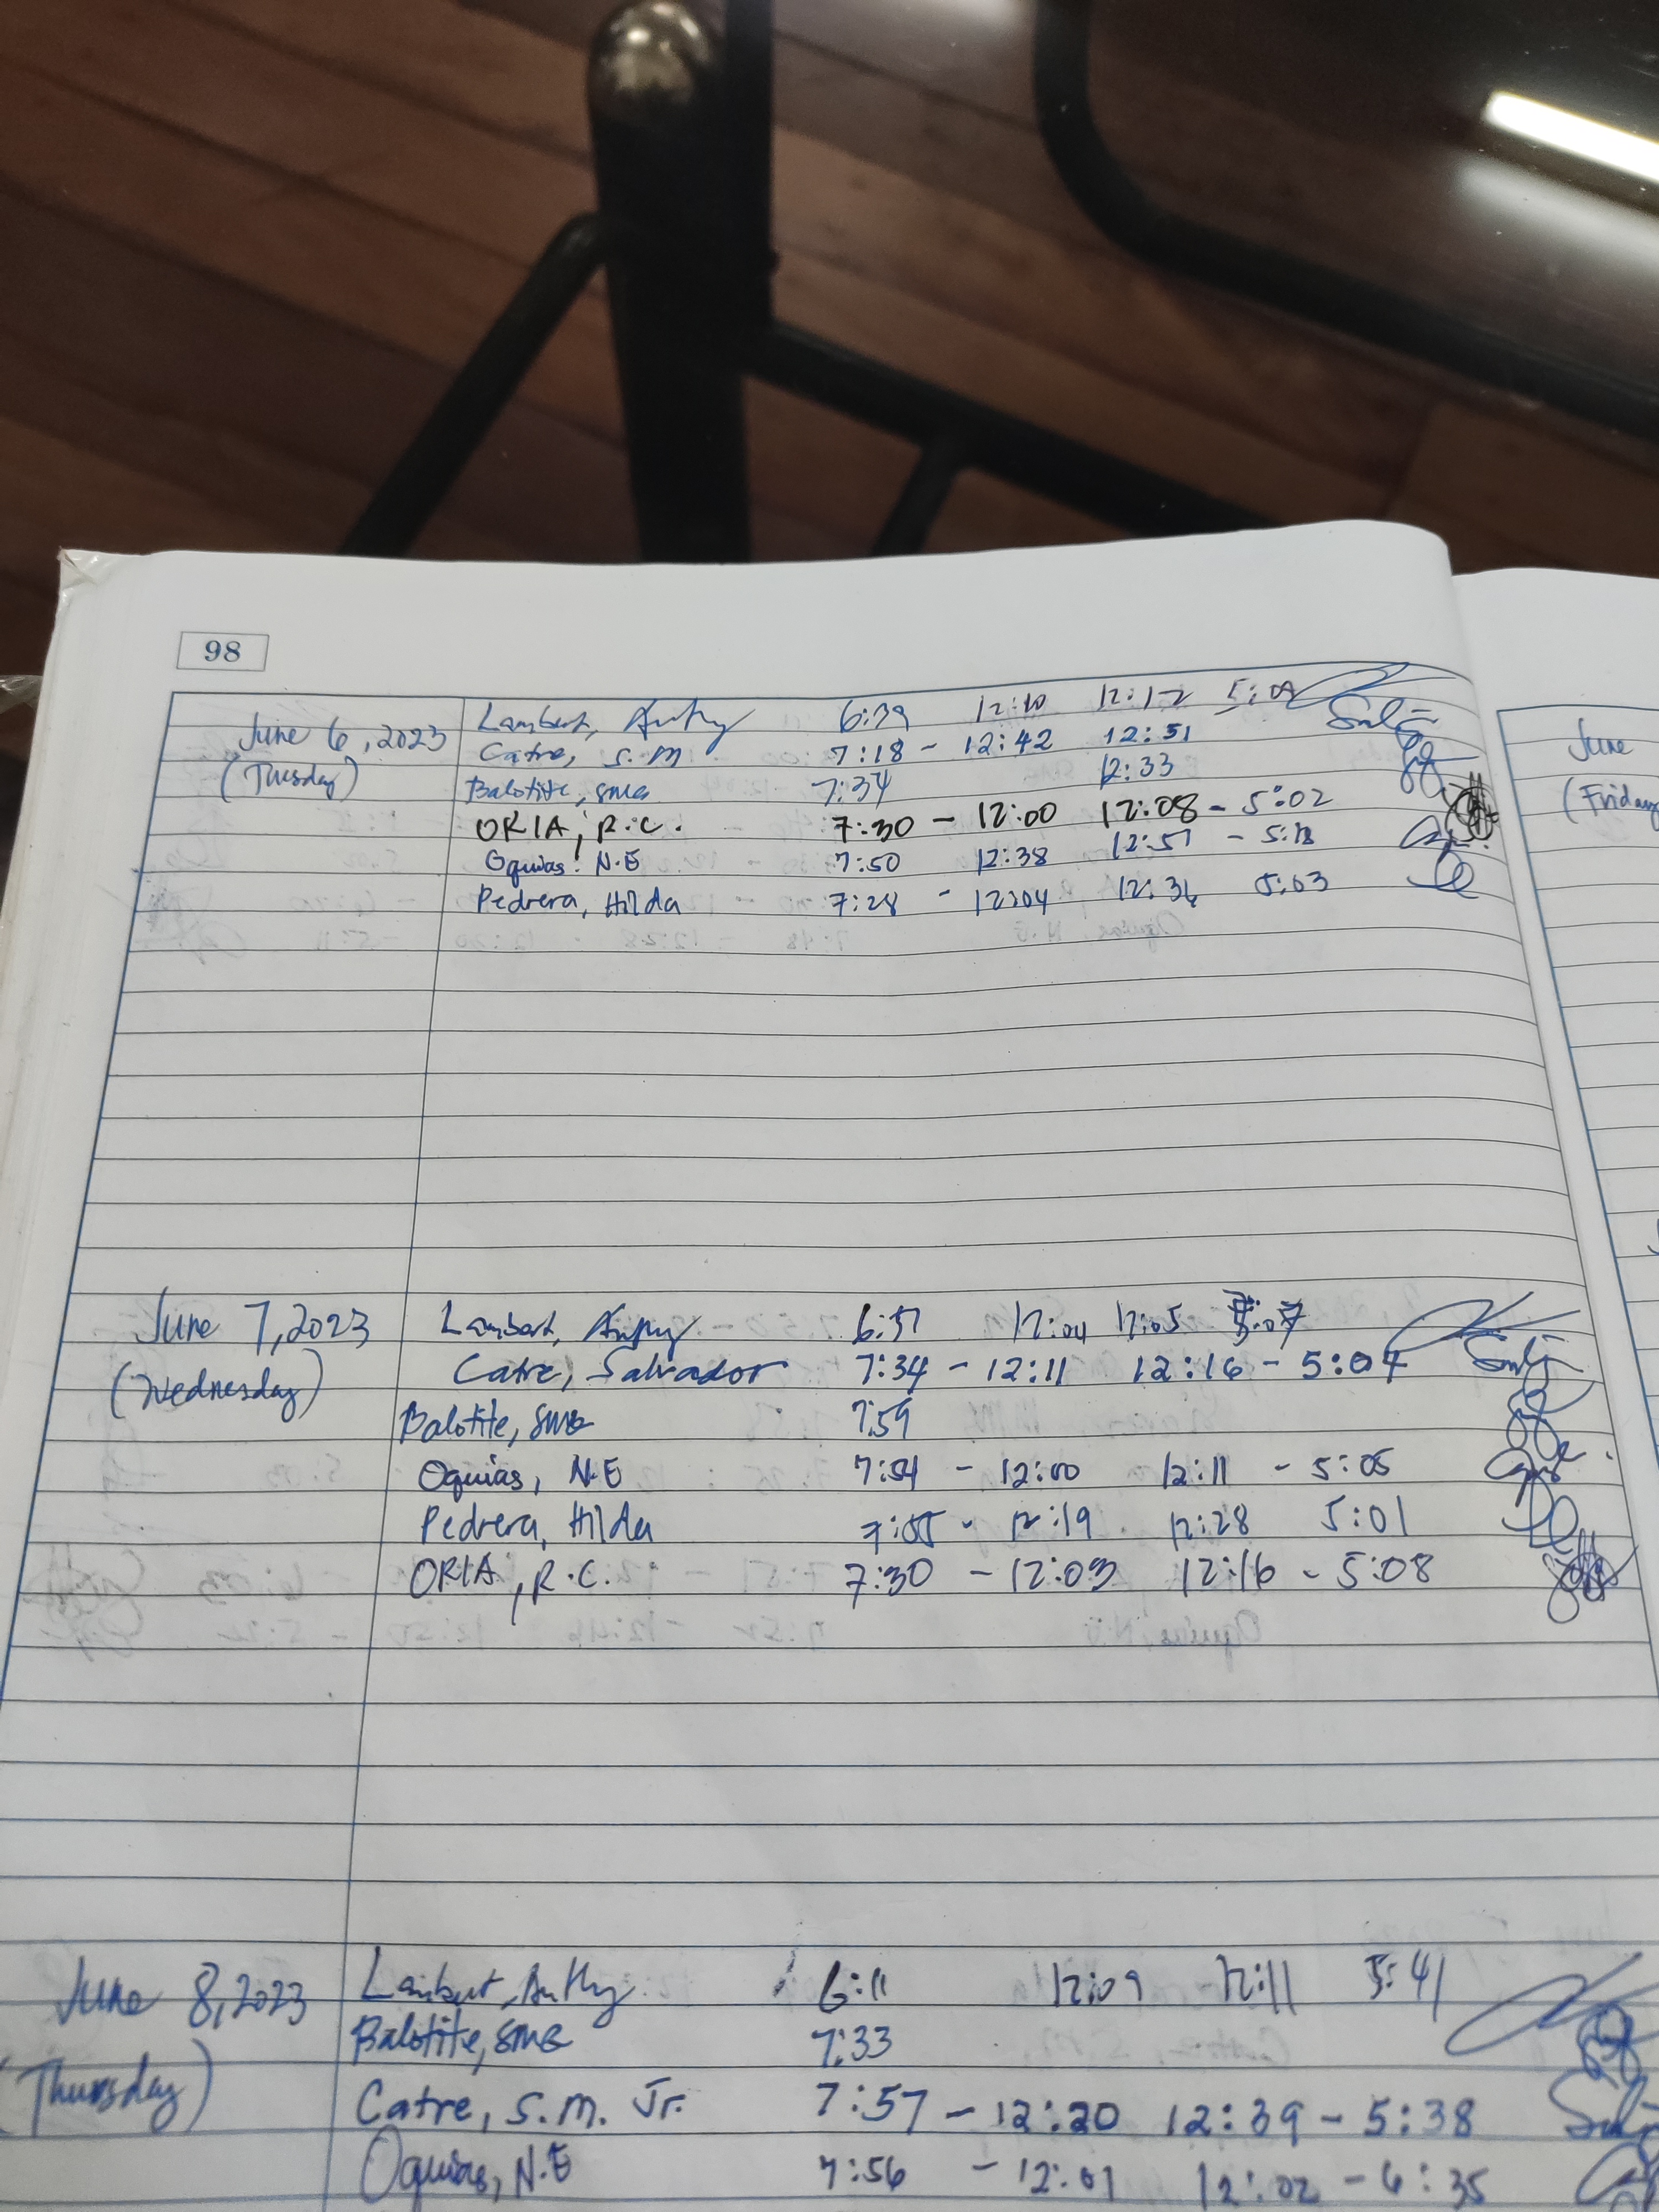 98
June 6, 2023 Lambert, Anthy 6:39 12:10 12:12 5:09
(Tuesday) Catre, S.M 7:18 - 12:42 12:51
Balotite, SMB 7:34 12:33
ORIA, R.C. 7:30 - 12:00 12:08 - 5:02
Oquias, N.E 7:50 12:38 12:57 - 5:13
Pedrera, Hilda 7:28 - 12:04 12:36 5:03
June 7, 2023 Lambert, Anthy 12:04 12:05
(Wednesday) Catre, Salvador 7:34 - 12:11 12:16 - 5:04
Balotite, SMB 7:59
Oquias, N.E 7:54 - 12:00 12:11 - 5:05
Pedrera, Hilda 7:55 - 12:19 12:28 5:01
ORIA, R.C. 7:30 - 12:03 12:16 - 5:08
June 8, 2023 Lambert, Anthy 6:11 12:09 12:11 5:41
(Thursday) Balotite, SMB 7:33
Catre, S.M. Jr. 7:57 - 12:20 12:39 - 5:38
Oquias, N.E 7:56 - 12:01 12:02 - 6:35
June
(Friday